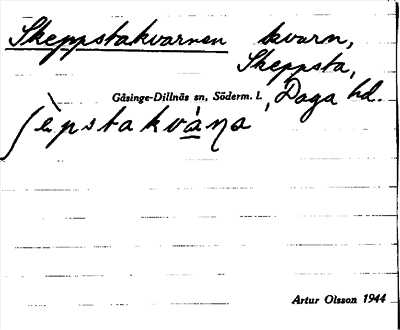 Skeppstakvarnen kvarn,
Skeppsta,
Gåsinge-Dillnäs sn, Söderm. l., Daga hd.
ʃèpstakvà̱ɳa
Artur Olsson 1944